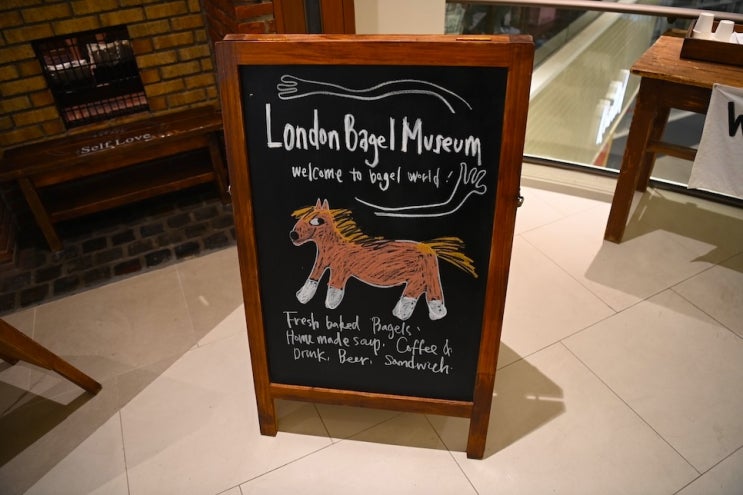 London Bagel Museum
welcome to bagel world!
Self Love
Fresh baked Bagels.
Home made soup. Coffee &
Drink. Beer. Sandwich.
W